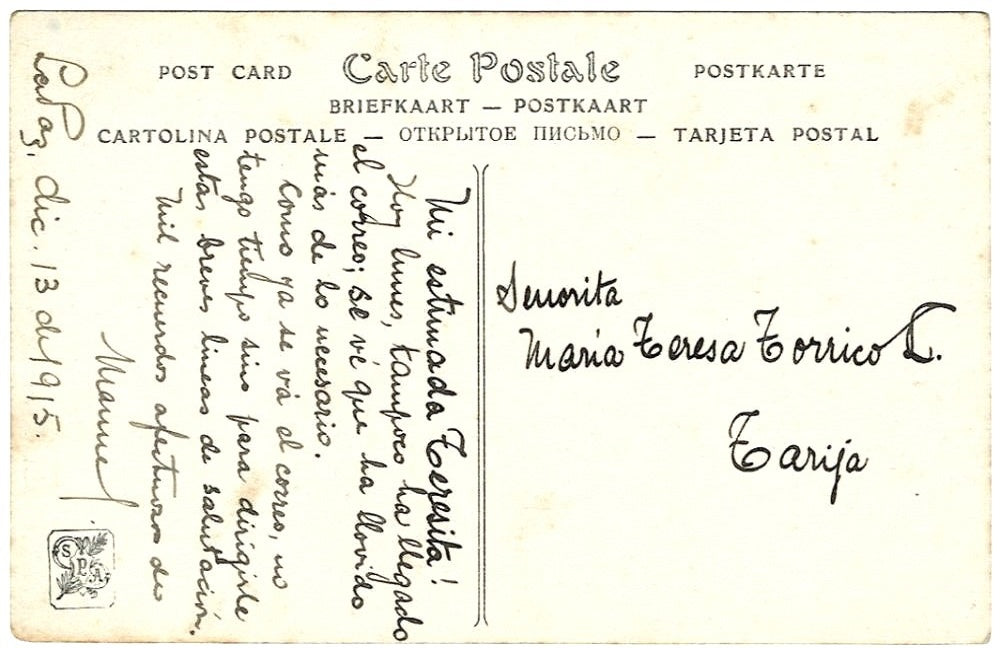 POST CARD Carte Postale POSTKARTE
BRIEFKAART — POSTKAART
CARTOLINA POSTALE — ОТКРЫТОЕ ПИСЬМО — TARJETA POSTAL
La Paz, dic. 13 de 1915.
Mi estimada Teresita!
Hoy lunes, tampoco ha llegado
el correo; se vé que ha llovido
más de lo necesario.
Como ya se vá el correo, no
tengo tiempo sino para dirigirte
estas breves lineas de salutación.
Mil recuerdos afectuosos de
Manuel
SPA
Senorita
María Teresa Torrico L.
Tarija